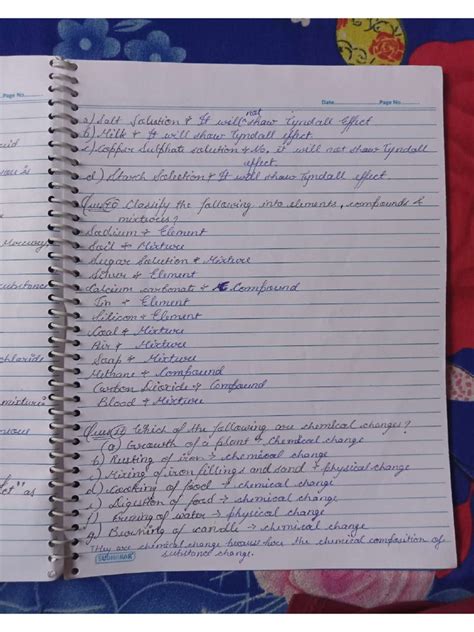 Page No.
Date
Page No.
a) Salt Solution → It will not show Tyndall Effect
b) Milk → It will show Tyndall effect.
c) Copper Sulphate solution → No, it will not show Tyndall
effect.
d) Starch Solution → It will show Tyndall effect.
Classify the following into elements, compounds &
mixtures?
Sodium → Element
Soil → Mixture
Sugar Solution → Mixture
Silver → Element
Calcium carbonate → Compound
Tin → Element
Silicon → Element
Coal → Mixture
Air → Mixture
Soap → Mixture
Methane → Compound
Carbon Dioxide → Compound
Blood → Mixture
Which of the following are chemical changes?
(a) Growth of a plant → chemical change
b) Rusting of iron → chemical change
c) Mixing of iron fillings and sand → physical change
d) Cooking of food → chemical change
e) Digestion of food → chemical change
f) Freezing of water → physical change
g) Burning of candle → chemical change
They are chemical change because here the chemical composition of
substance change.